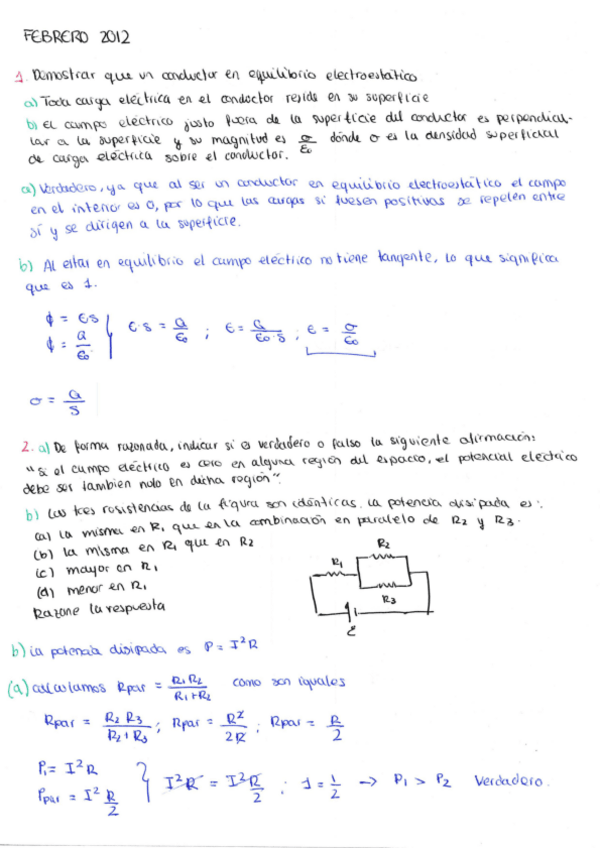 FEBRERO 2012
1. Demostrar que un conductor en equilibrio electroestático
a) Toda carga eléctrica en el conductor reside en su superficie
b) El campo eléctrico justo fuera de la superficie del conductor es perpendicu-
lar a la superficie y su magnitud es σ/ε₀ dónde σ es la densidad superficial
de carga eléctrica sobre el conductor.
a) Verdadero, ya que al ser un conductor en equilibrio electroestático el campo
en el interior es 0, por lo que las cargas si fuesen positivas se repelen entre
sí y se dirigen a la superficie.
b) Al estar en equilibrio el campo eléctrico no tiene tangente, lo que significa
que es 1.
ϕ = ES
ϕ = Q/ε₀
E·S = Q/ε₀ ; E = Q/ε₀·S ; E = σ/ε₀
σ = Q/S
2. a) De forma razonada, indicar si es verdadero o falso la siguiente afirmación:
"si el campo eléctrico es cero en alguna región del espacio, el potencial electrico
debe ser tambien nulo en dicha región".
b) Las tres resistencias de la figura son idénticas. La potencia disipada es:
(a) la misma en R₁ que en la combinación en paralelo de R₂ y R₃.
(b) la misma en R₁ que en R₂
(c) mayor en R₁
(d) menor en R₁
Razone la respuesta
R₂
R₁
R₃
ε
b) La potencia disipada es P = I²R
(a) calculamos Rpar = R₁R₂/R₁+R₂ como son iguales
Rpar = R₂R₃/R₂+R₃ ; Rpar = R²/2R ; Rpar = R/2
P₁ = I²R
Ppar = I² R/2
I²R = I²R/2 ; 1 = 1/2 → P₁ > P₂ Verdadero.